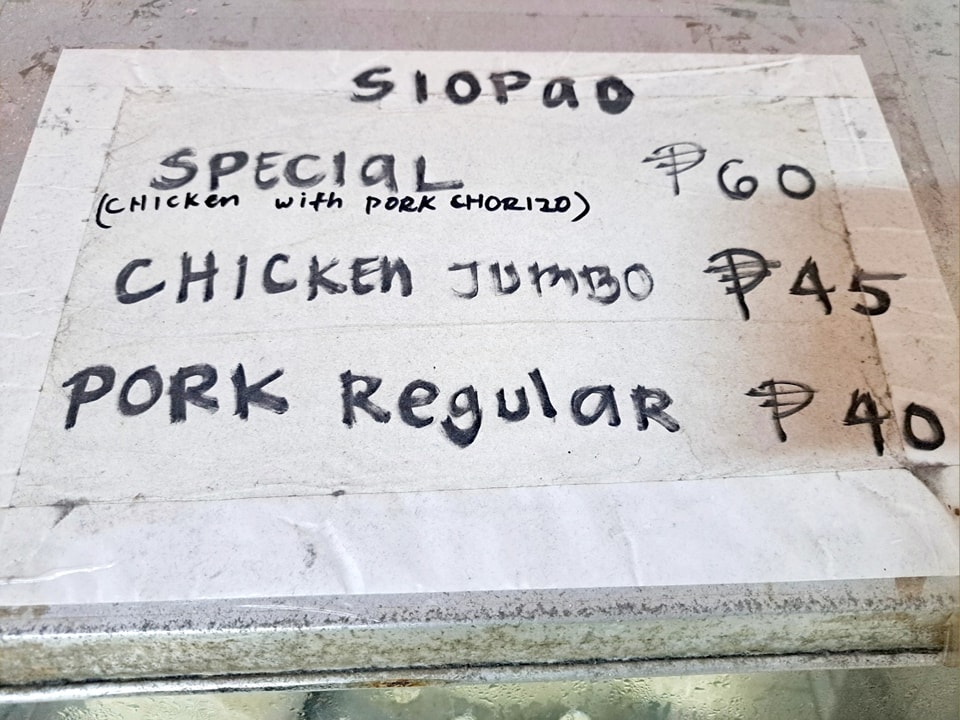 SIOPaO
SPECIaL ₱60
(CHICKen with PORK CHORIZO)
CHICKEn JUMBO ₱45
PORK RegulaR ₱40